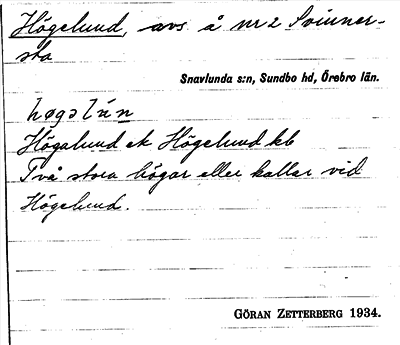 Högelund, avs å nr 2 Svinner-
sta
Snavlunda s:n, Sundbo hd, Örebro län.
høgəlún
Högalund ek Högelund kb
Två stora högar eller kullar vid
Högelund.
GÖRAN ZETTERBERG 1934.